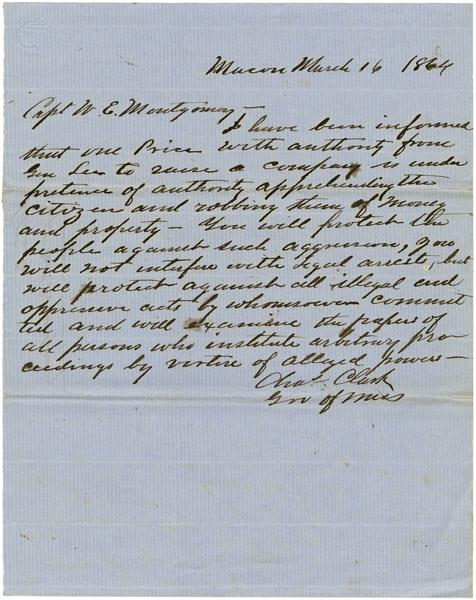 Macon March 16 1864
Capt W. E. Montgomery
I have been informed
that one Price with authority from
Gen Lee to raise a company is under
pretence of authority apprehending the
citizen and robbing them of money
and property — You will protect the
people against such aggression, you
will not interfere with legal arrests, but
will protect against all illegal and
oppressive acts by whomsoever commit
ted and will examine the papers of
all persons who institute arbitrary pro
ceedings by virtue of alleged powers —
Chas Clark
Gov of Miss